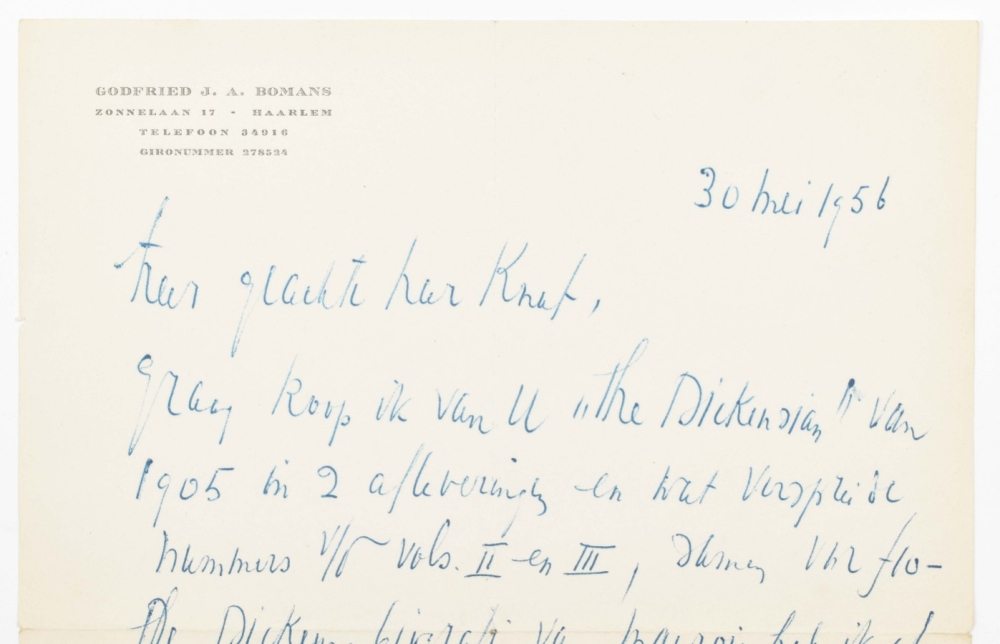 GODFRIED J. A. BOMANS
ZONNELAAN 17 - HAARLEM
TELEFOON 34916
GIRONUMMER 278524
30 mei 1956
Zeer geachte heer Knuf,
graag koop ik van U „The Dickensian" van
1905 in 2 afleveringen en wat verspreide
nummers v/d vols. II en III, samen voor f10-
The Dickens